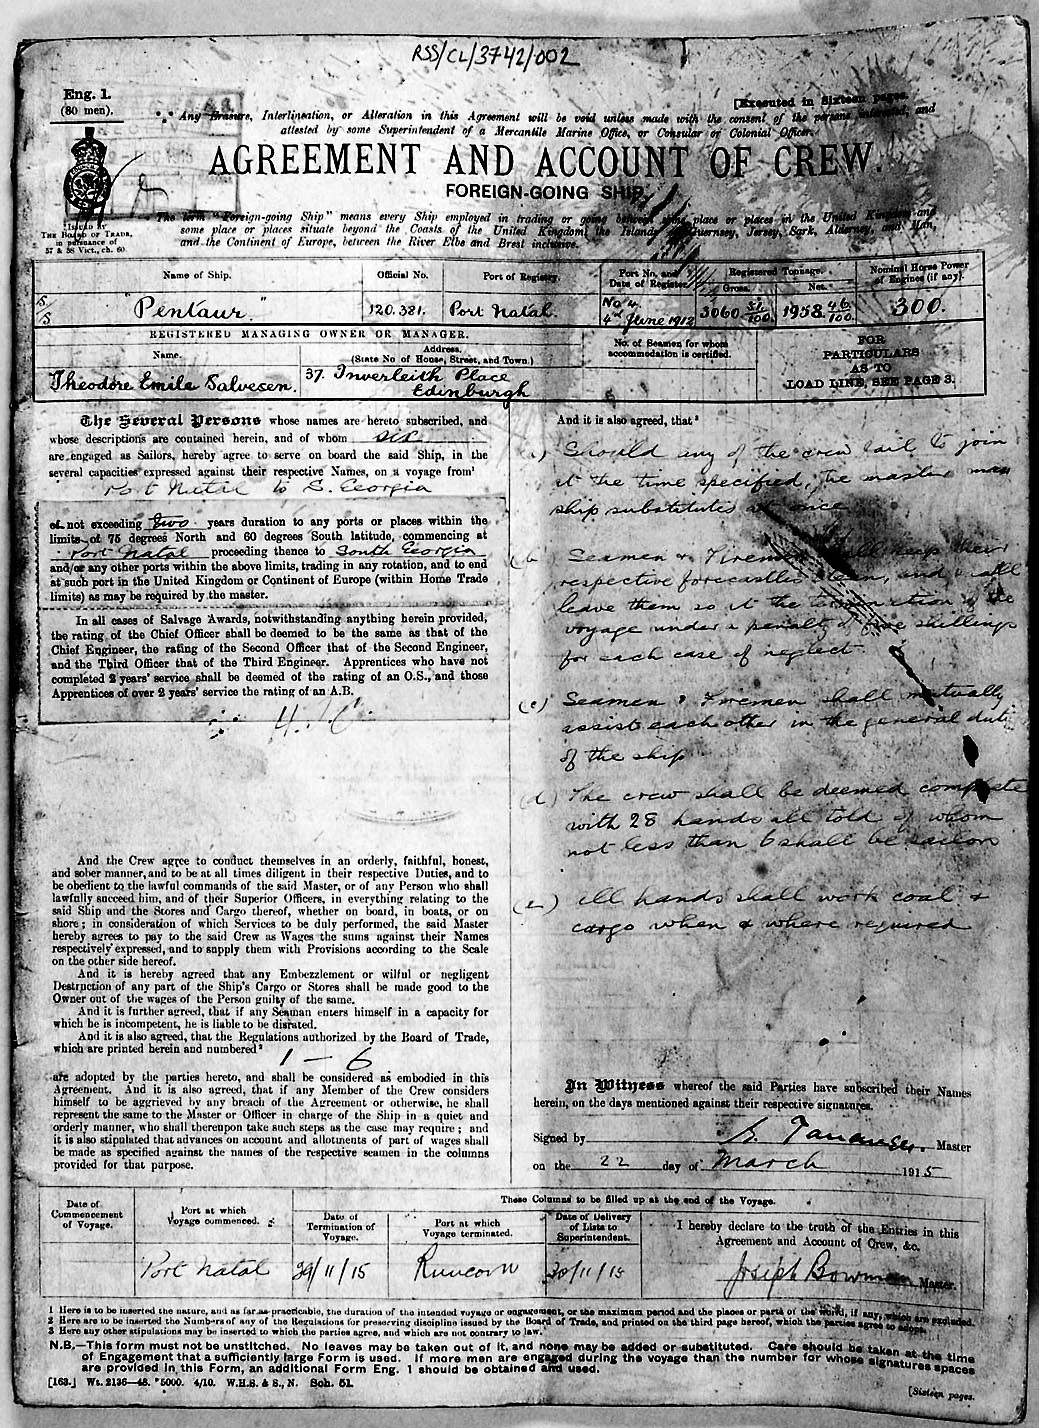 RSS/CL/3742/002
Eng. 1.
(80 men).
[Executed in Sixteen pages.
Any Erasure, Interlineation, or Alteration in this Agreement will be void unless made with the consent of the persons interested, and
attested by some Superintendent of a Mercantile Marine Office, or Consular or Colonial Officer.
AGREEMENT AND ACCOUNT OF CREW.
FOREIGN-GOING SHIP.
ISSUED BY
THE BOARD OF TRADE,
in pursuance of
57 & 58 Vict., ch. 60
The term "Foreign-going Ship" means every Ship employed in trading or going between some place or places in the United Kingdom and
some place or places situate beyond the Coasts of the United Kingdom, the Islands of Guernsey, Jersey, Sark, Alderney, and Man,
and the Continent of Europe, between the River Elbe and Brest inclusive.
Name of Ship. Official No. Port of Registry. Port No. and Date of Register. Registered Tonnage. Gross. Net. Nominal Horse Power of Engines (if any).
S/S "Pentaur" 120.381. Port Natal. No 4. 4th June 1912 3060 51/100 1958 46/100 300.
REGISTERED MANAGING OWNER OR MANAGER.
Name. Address. (State No of House, Street, and Town.)
No. of Seamen for whom accommodation is certified.
FOR PARTICULARS AS TO LOAD LINE, SEE PAGE 3.
Theodore Emile Salvesen. 37. Inverleith Place
Edinburgh
The Several Persons whose names are hereto subscribed, and
whose descriptions are contained herein, and of whom six
are engaged as Sailors, hereby agree to serve on board the said Ship, in the
several capacities expressed against their respective Names, on a voyage from¹
Port Natal to S. Georgia
of not exceeding two years duration to any ports or places within the
limits of 75 degrees North and 60 degrees South latitude, commencing at
Port Natal proceeding thence to South Georgia
and/or any other ports within the above limits, trading in any rotation, and to end
at such port in the United Kingdom or Continent of Europe (within Home Trade
limits) as may be required by the master.
In all cases of Salvage Awards, notwithstanding anything herein provided,
the rating of the Chief Officer shall be deemed to be the same as that of the
Chief Engineer, the rating of the Second Officer that of the Second Engineer,
and the Third Officer that of the Third Engineer. Apprentices who have not
completed 2 years' service shall be deemed of the rating of an O.S., and those
Apprentices of over 2 years' service the rating of an A.B.
And the Crew agree to conduct themselves in an orderly, faithful, honest,
and sober manner, and to be at all times diligent in their respective Duties, and to
be obedient to the lawful commands of the said Master, or of any Person who shall
lawfully succeed him, and of their Superior Officers, in everything relating to the
said Ship and the Stores and Cargo thereof, whether on board, in boats, or on
shore; in consideration of which Services to be duly performed, the said Master
hereby agrees to pay to the said Crew as Wages the sums against their Names
respectively expressed, and to supply them with Provisions according to the Scale
on the other side hereof.
And it is hereby agreed that any Embezzlement or wilful or negligent
Destruction of any part of the Ship's Cargo or Stores shall be made good to the
Owner out of the wages of the Person guilty of the same.
And it is further agreed, that if any Seaman enters himself in a capacity for
which he is incompetent, he is liable to be disrated.
And it is also agreed, that the Regulations authorized by the Board of Trade,
which are printed herein and numbered² 1 - 6
are adopted by the parties hereto, and shall be considered as embodied in this
Agreement. And it is also agreed, that if any Member of the Crew considers
himself to be aggrieved by any breach of the Agreement or otherwise, he shall
represent the same to the Master or Officer in charge of the Ship in a quiet and
orderly manner, who shall thereupon take such steps as the case may require; and
it is also stipulated that advances on account and allotments of part of wages shall
be made as specified against the names of the respective seamen in the columns
provided for that purpose.
And it is also agreed, that³
(a) Should any of the crew fail to join
at the time specified, the master may
ship substitutes at once
(b) Seamen & Firemen shall keep their
respective forecastles clean, and shall
leave them so at the termination of the
voyage under a penalty of five shillings
for each case of neglect.
(c) Seamen & Firemen shall mutually
assist each other in the general duties
of the ship
(d) The crew shall be deemed complete
with 28 hands all told of whom
not less than 6 shall be sailors
(e) All hands shall work coal &
cargo when & where required
In Witness whereof the said Parties have subscribed their Names
herein, on the days mentioned against their respective signatures.
Signed by Master
on the 22 day of March 1915
These Columns to be filled up at the end of the Voyage.
Date of Commencement of Voyage. Port at which Voyage commenced. Date of Termination of Voyage. Port at which Voyage terminated. Date of Delivery of Lists to Superintendent.
I hereby declare to the truth of the Entries in this
Agreement and Account of Crew, &c.
Port Natal 29/11/15 Runcorn 30/11/15 Joseph Bowman Master.
1 Here is to be inserted the nature, and as far as practicable, the duration of the intended voyage or engagement, or the maximum period and the places or parts of the world, if any, which are excluded.
2 Here are to be inserted the Numbers of any of the Regulations for preserving discipline issued by the Board of Trade, and printed on the third page hereof, which the parties agree to adopt.
3 Here any other stipulations may be inserted to which the parties agree, and which are not contrary to law.
N.B.—This form must not be unstitched. No leaves may be taken out of it, and none may be added or substituted. Care should be taken at the time
of Engagement that a sufficiently large Form is used. If more men are engaged during the voyage than the number for whose signatures spaces
are provided in this Form, an additional Form Eng. 1 should be obtained and used.
[163.] Wt. 2136—48. 5000. 4/10. W.H.S. & S., N. Sch. 51.
[Sixteen pages.